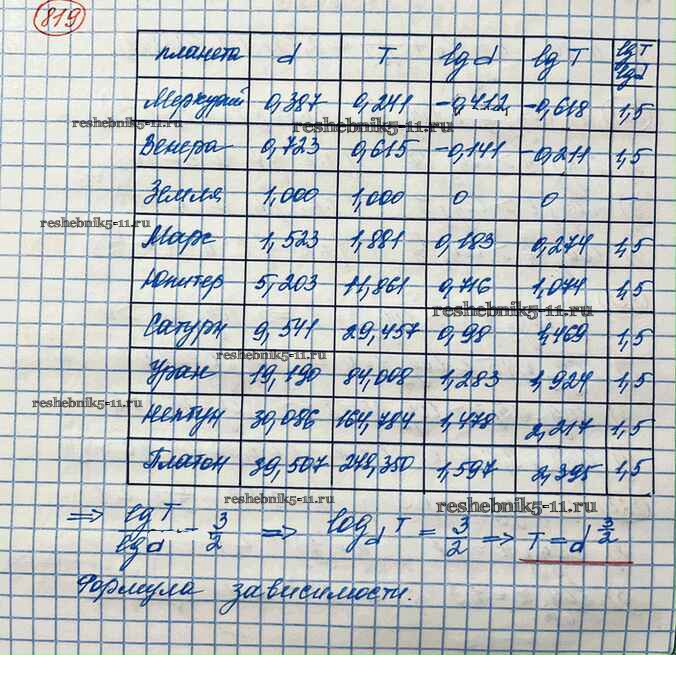 819
планета d T lg d lg T lg T / lg d
Меркурий 0,387 0,241 -0,412 -0,618 1,5
reshebnik5-11.ru reshebnik5-11.ru
Венера 0,723 0,615 -0,141 -0,211 1,5
Земля 1,000 1,000 0 0 —
reshebnik5-11.ru
Марс 1,523 1,881 0,183 0,274 1,5
Юпитер 5,203 11,861 0,716 1,074 1,5
reshebnik5-11.ru
Сатурн 9,541 29,457 0,98 1,469 1,5
reshebnik5-11.ru
Уран 19,190 84,008 1,283 1,924 1,5
reshebnik5-11.ru
Нептун 30,086 164,784 1,478 2,217 1,5
Платон 39,507 248,350 1,597 2,395 1,5
reshebnik5-11.ru reshebnik5-11.ru
=> lg T / lg d = 3/2 => log_d T = 3/2 => T = d^(3/2)
Формула зависимости.
reshebnik5-11.ru